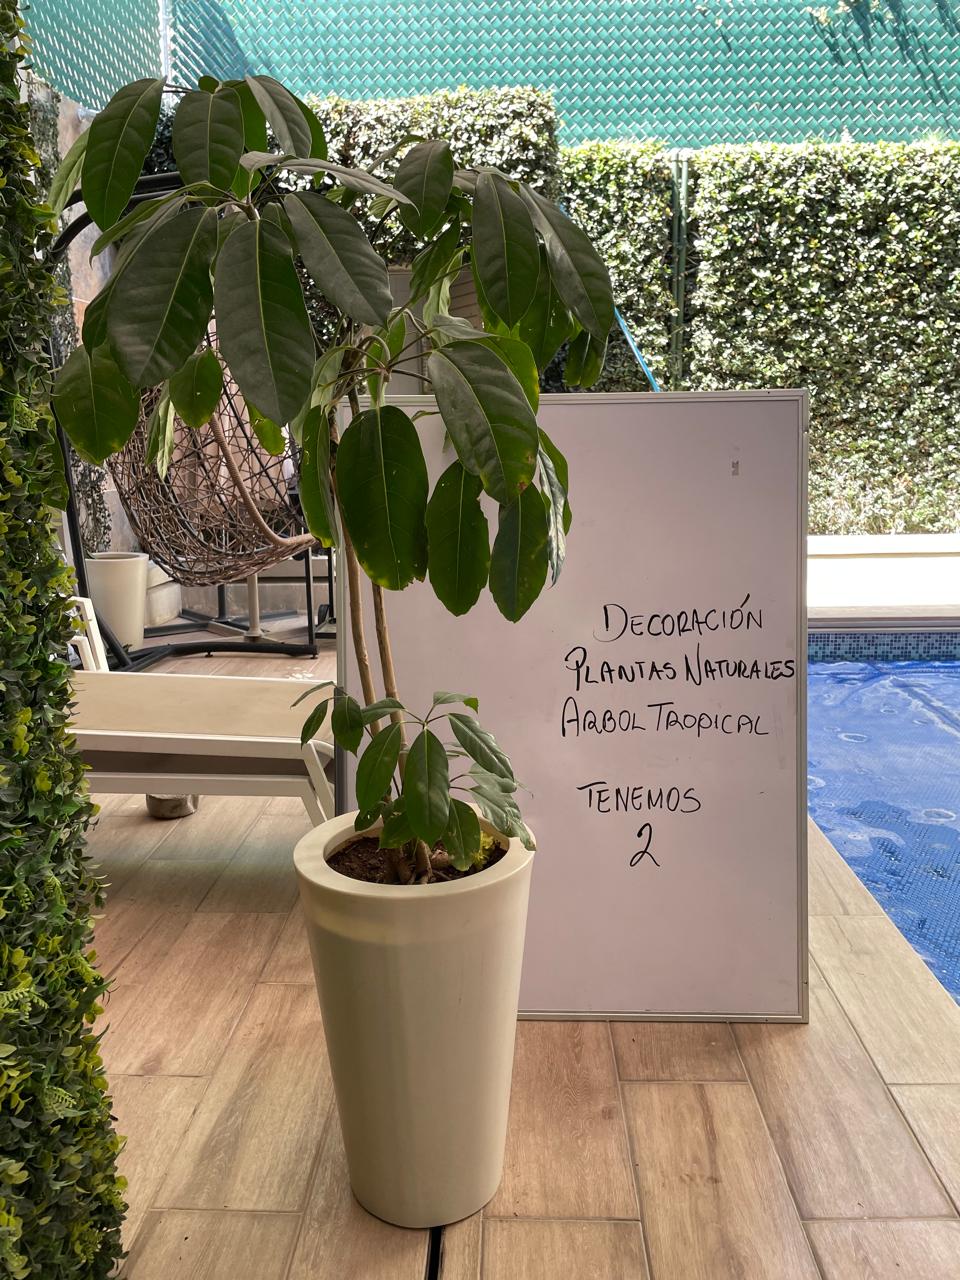 DECORACIÓN
PLANTAS NATURALES
ARBOL TROPICAL
TENEMOS
2